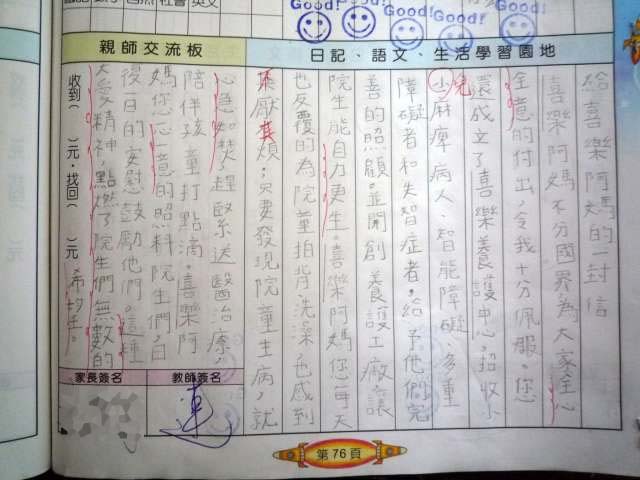 Good! Good! Good! Good!
日記、語文、生活學習園地
親師交流板
給喜樂阿媽的一封信
喜樂阿媽不分國界為大家全心
全意的付出，令我十分佩服。您
還成立了喜樂養護中心，招收小
兒麻痺病人、智能障礙、多重
障礙者和失智症者，給予他們完
善的照顧，並開創養護工廠，讓
院生能自力更生。喜樂阿媽您每天
也反覆的為院童拍背洗澡，也感到
不厭其煩，只要發現院童生病，就
心急如焚，趕緊送醫治療，
陪伴孩童打點滴。喜樂阿
媽您心一意的照料院生們，日
復一日的安慰鼓勵他們，這種
大愛精神，點燃了院生們無數的
希望。
收到（　）元，找回（　）元
教師簽名
家長簽名
第76頁